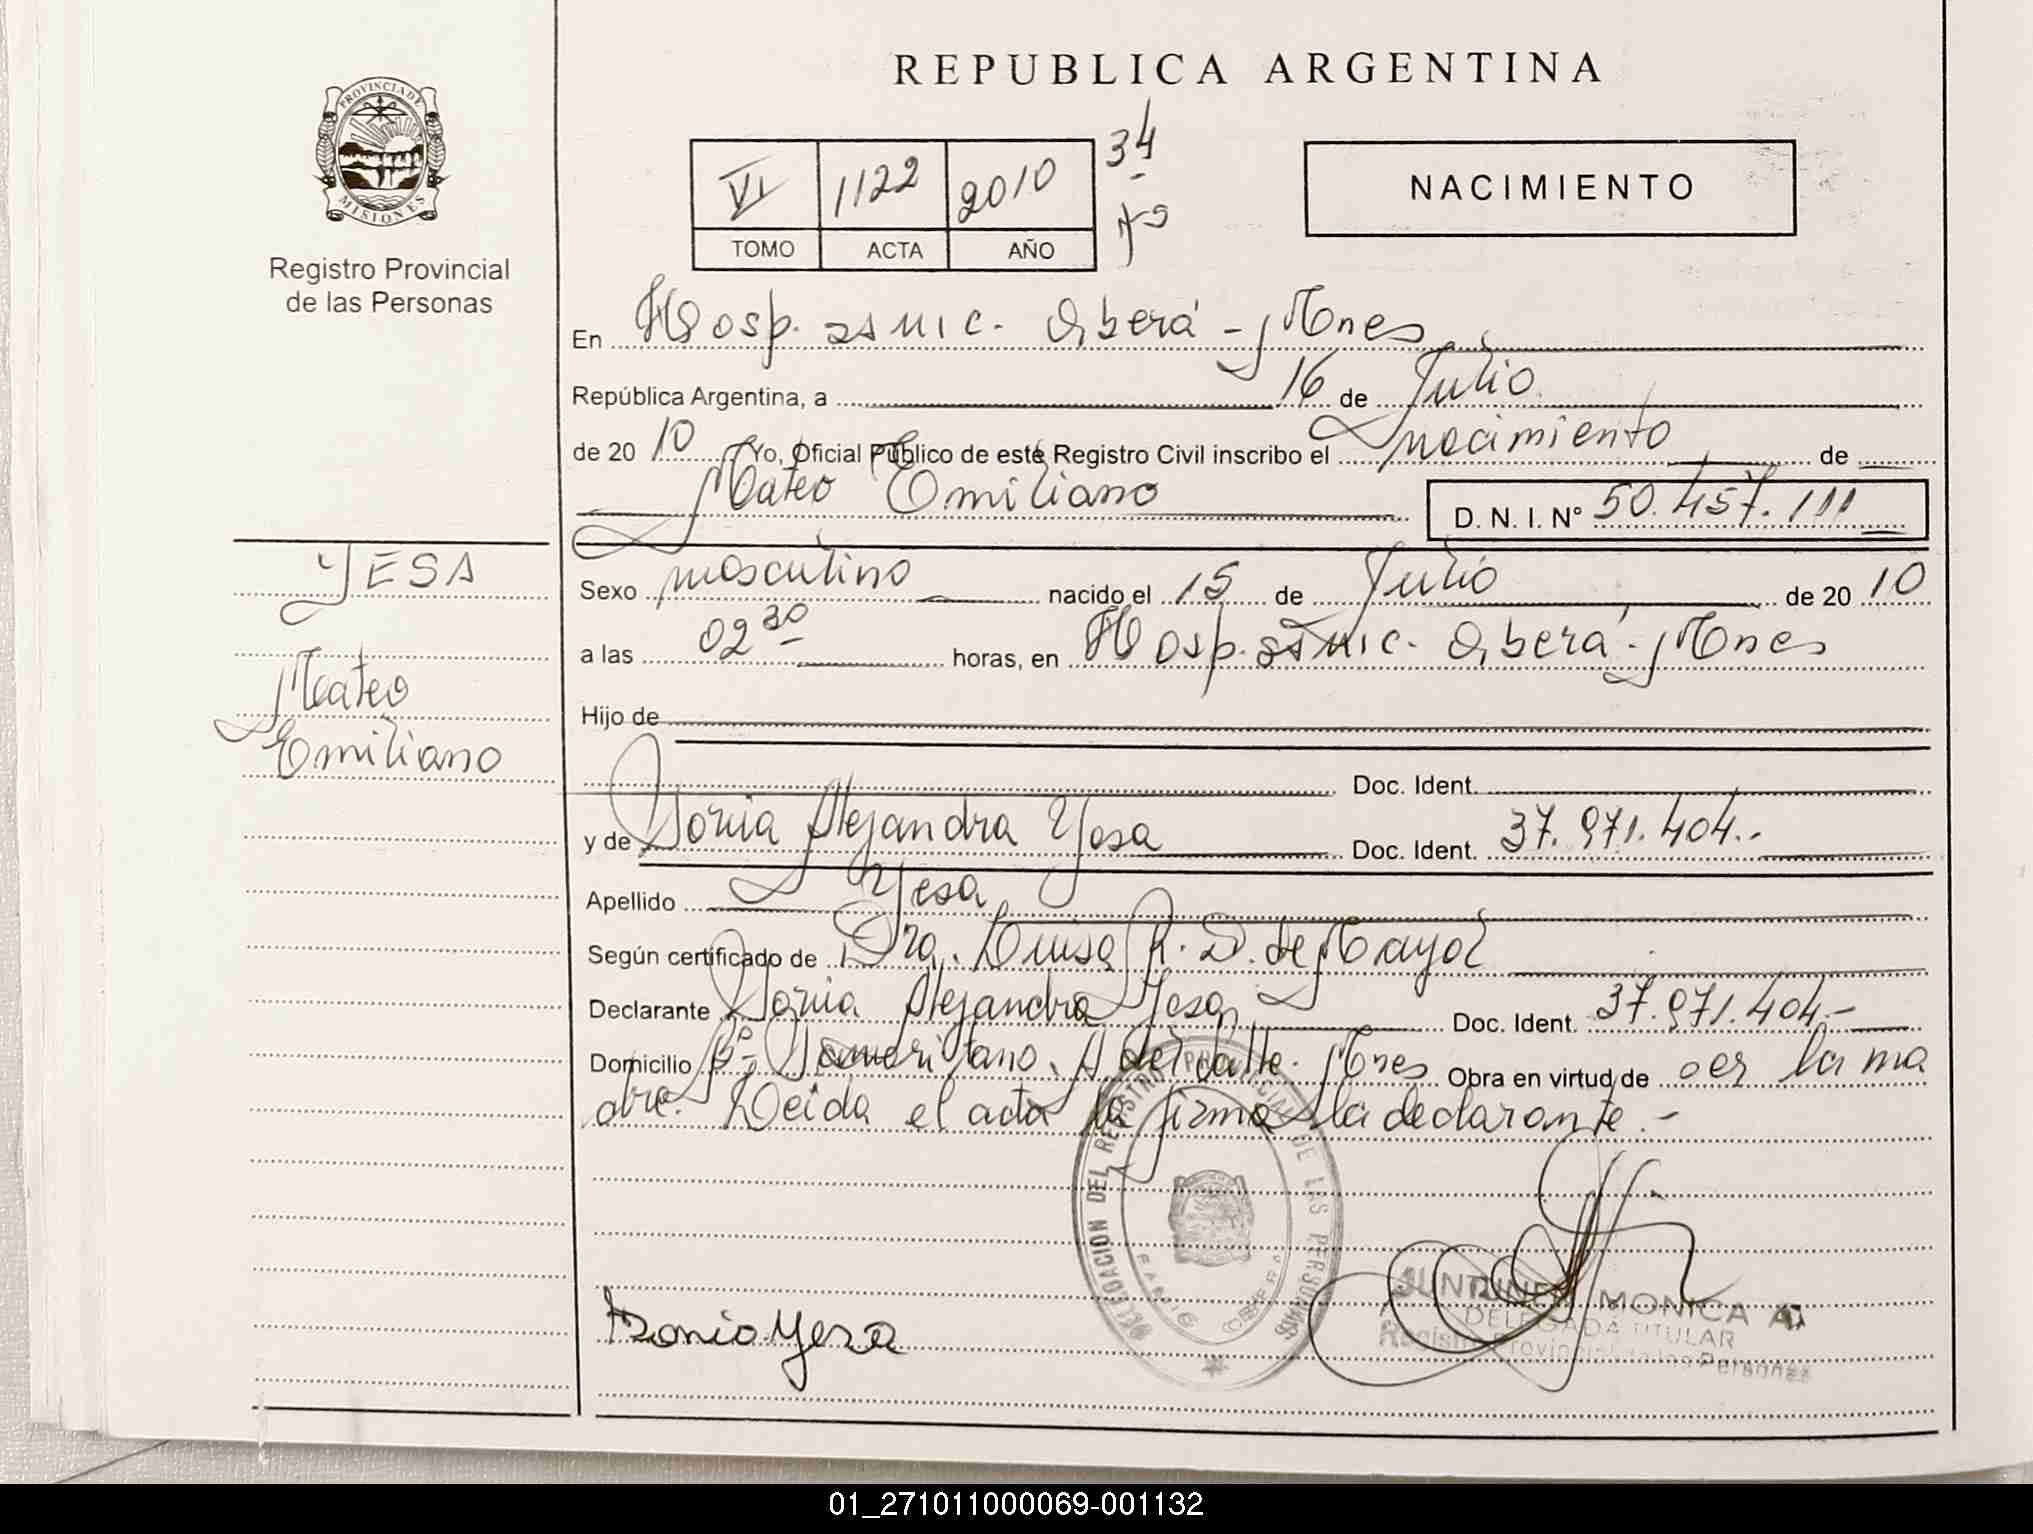 REPUBLICA ARGENTINA
PROVINCIA DE
MISIONES
Registro Provincial
de las Personas
VI 1122 2010 34
TOMO ACTA AÑO
NACIMIENTO
En Hosp. Samic. Oberá - Mnes
República Argentina, a 16 de Julio
de 20 10 Yo, Oficial Público de este Registro Civil inscribo el nacimiento de
Mateo Emiliano D. N. I. N° 50.457.111
YESA
Mateo
Emiliano
Sexo masculino nacido el 15 de Julio de 20 10
a las 02 30 horas, en Hosp. Samic. Oberá - Mnes
Hijo de
Doc. Ident.
y de Sonia Alejandra Yesa Doc. Ident. 37.971.404.-
Apellido Yesa
Según certificado de Dra. Luisa R. D. de Mayol
Declarante Sonia Alejandra Yesa Doc. Ident. 37.971.404.-
Domicilio B° Samaritano. A del Valle. Mnes Obra en virtud de ser la ma
dre. Leida el acta la firma la declarante.-
DELEGACION DEL REGISTRO PROVINCIAL DE LAS PERSONAS
OBERA
Sonia Yesa
MONICA A.
DELEGADA TITULAR
Registro Provincial de las Personas
01_271011000069-001132